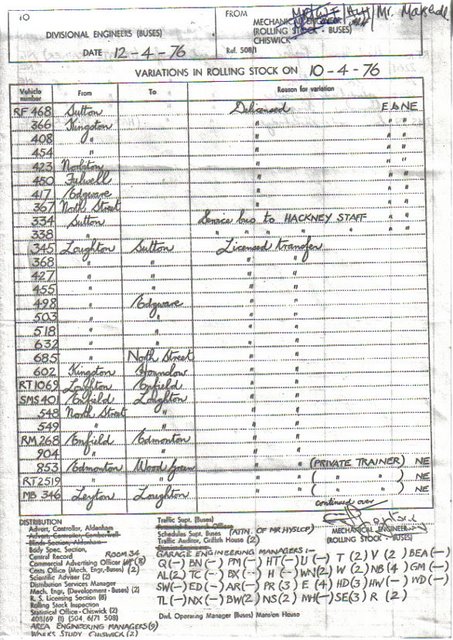 10
DIVISIONAL ENGINEERS (BUSES)
DATE 12-4-76
FROM Mr. Makedi
MECHANICAL ENGINEER
(ROLLING STOCK - BUSES)
CHISWICK
Ref. 508/1
VARIATIONS IN ROLLING STOCK ON 10-4-76
Vehicle number From To Reason for variation
RF 468 Sutton Delicensed E & NE
366 Kingston " " "
408 " " " "
454 " " "
423 Norbiton " " "
450 Fulwell " " "
417 Edgware " " "
367 North Street " " "
334 Sutton Service bus to HACKNEY STAFF " "
338 " " " " " " "
345 Loughton Sutton Licensed transfer
368 " " " "
427 " " " "
455 " " " "
498 " Edgware " "
503 " " " "
518 " " " "
632 " " " "
685 " North Street " "
602 Kingston Hounslow " "
RT1069 Loughton Enfield " "
SMS 401 Enfield Loughton " "
548 North Street " " "
549 " " " "
RM 268 Enfield Edmonton " "
904 " " " "
853 Edmonton Wood Green " " (PRIVATE TRAINER) NE
RT2519 " " " " ( " " ) NE
MB 346 Leyton Loughton " " ( " " ) NE
continued over
MECHANICAL ENGINEER
(ROLLING STOCK - BUSES)
DISTRIBUTION
Advert. Controller, Aldenham
Advert. Controller, Camberwell
Blinds Section, Aldenham
Body Spec. Section,
Central Record ROOM 34
Commercial Advertising Officer (8)
Costs Office (Mech. Engr.-Buses) (2)
Scientific Adviser (2)
Distribution Services Manager
Mech. Engr. (Development - Buses) (2)
R. S. Licensing Section (8)
Rolling Stock Inspection
Statistical Office - Chiswick (2)
408/69 (1) (504, 6/71 508)
AREA ENGINEERING MANAGERS (9)
WORKS STUDY CHISWICK (2)
Traffic Supt. (Buses)
Schedules Supt. (Buses) (ATTN. OF MR. HYSLOP)
Traffic Auditor, Griffith House (2)
GARAGE ENGINEERING MANAGERS:-
Q(-) BN(-) PM(-) HT(-) U(-) T(2) V(2) BEA(-)
AL(2) TC(-) BX(-) H(-) WN(2) W(2) NB(4) GM(-)
SW(-) ED(-) AR(-) PR(3) E(4) HD(3) HW(-) WD(-)
TL(-) NX(-) BW(2) NS(2) NH(-) SE(3) R(2)
Divl. Operating Manager (Buses) Mansion House